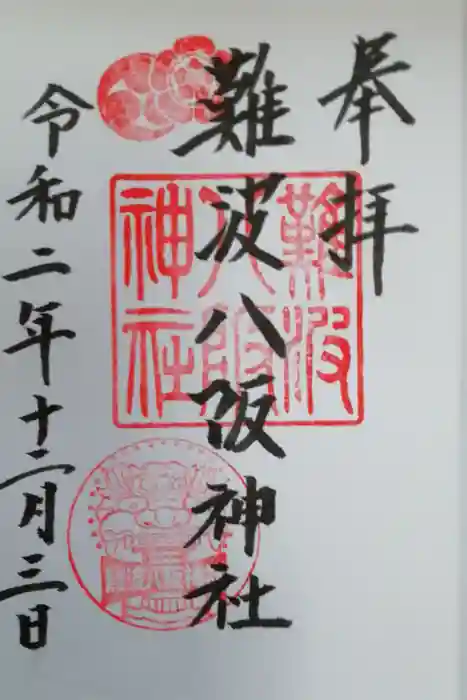 奉拝
難波八阪神社
難波八阪神社
令和二年十二月三日